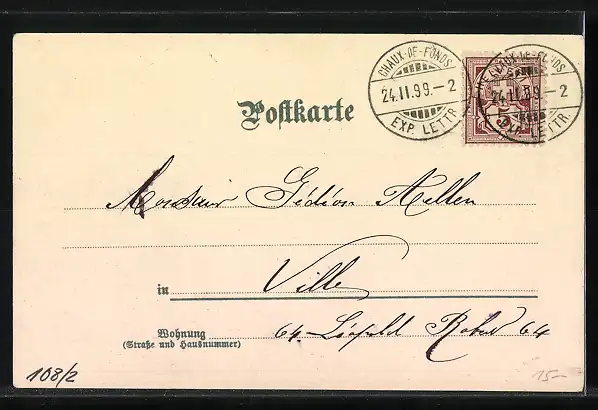 CHAUX-DE-FONDS
24.II.99.-2
EXP. LETTR.
CHAUX-DE-FONDS
24.II.99.-2
EXP. LETTR.
5
Postkarte
Monsieur Gédéon
in Ville
Wohnung
(Straße und Hausnummer)
64 Léopold Robert 64
108/2
15-